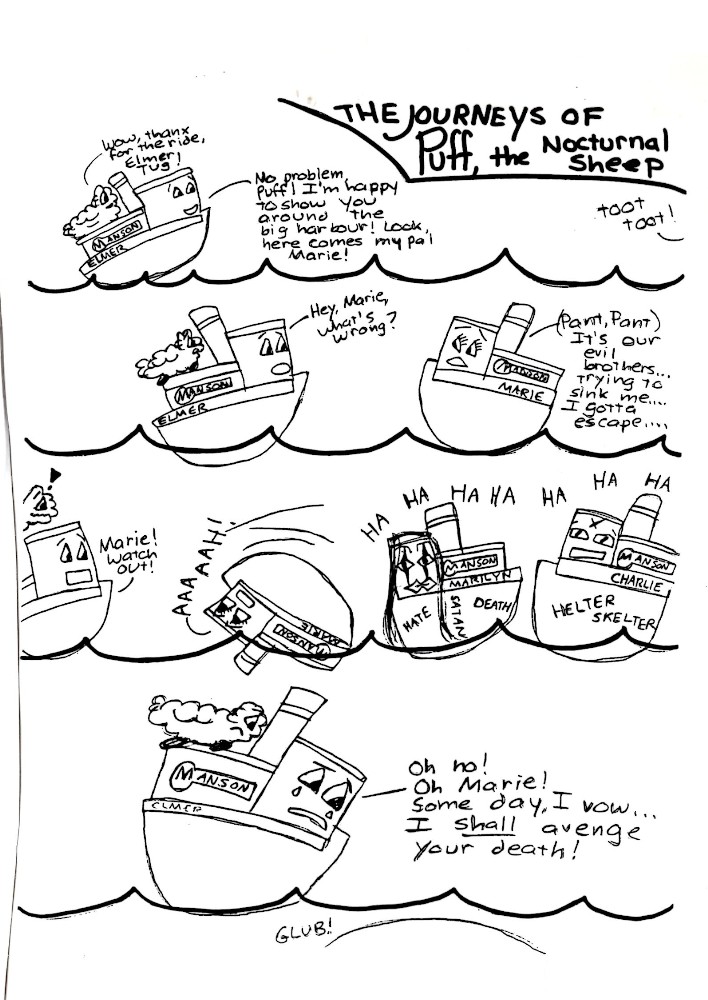 THE JOURNEYS OF
Puff, the Nocturnal
Sheep
Wow, thanx
for the ride,
Elmer
Tug!
No problem,
Puff! I'm happy
to show you
around the
big harbour! Look,
here comes my pal
Marie!
TOOT
TOOT!
MANSON
ELMER
Hey, Marie,
what's
wrong?
(Pant, Pant)
It's our
evil
brothers...
trying to
sink me....
I gotta
escape....
MANSON
ELMER
MANSON
MARIE
HA HA HA HA HA HA HA
Marie!
Watch
out!
AAAAAAH!
MANSON
MARIE
MANSON
MARILYN
HATE
SATAN
DEATH
MANSON
CHARLIE
HELTER
SKELTER
MANSON
ELMER
Oh no!
Oh Marie!
Some day, I vow...
I shall avenge
your death!
GLUB!